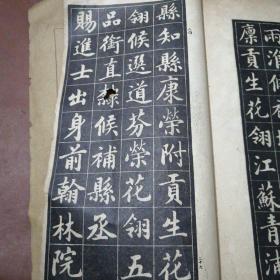 兩淮候
廩貢生花翎江蘇青
縣知縣康榮附貢生花
翎候選道芬榮花翎五
品銜直隸候補縣丞
賜進士出身前翰林院